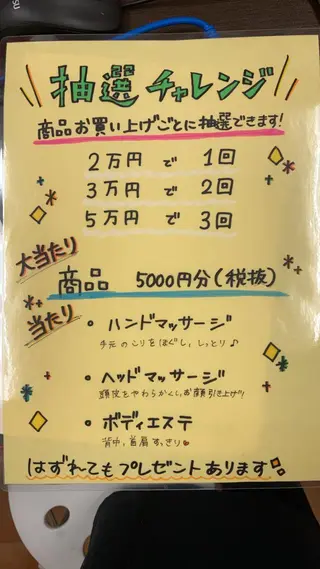 抽選チャレンジ
商品お買い上げごとに抽選できます!
2万円で 1回
3万円で 2回
5万円で 3回
大当たり
商品 5000円分(税抜)
当たり
• ハンドマッサージ
手元のこりをほぐし、しっとり♪
• ヘッドマッサージ
頭皮をやわらかくし、お顔引き上げ!!
• ボディエステ
背中、首肩すっきり♥
はずれてもプレゼントあります!